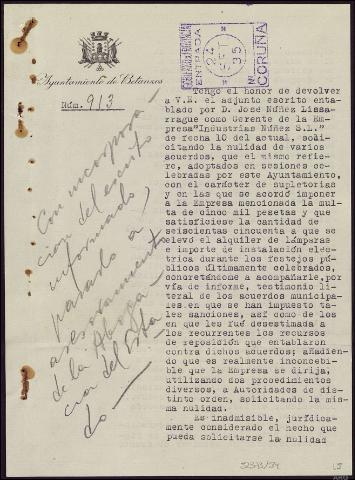 Ayuntamiento de Betanzos
Núm. 913
ENTRADA
24 SET 35
CORUÑA
Tengo el honor de devolver
a V.E. el adjunto escrito enta
blado por D. Jose Núñez Lissa-
rrague como Gerente de la Em-
presa"Industrias Núñez S.L."
de fecha 10 del actual, solici-
tando la nulidad de varios
acuerdos, que el mismo refie-
re, adoptados en sesiones ce-
lebradas por este Ayuntamiento,
con el carácter de supletorias
y en las que se acordó imponer
a la Empresa mencionada la mul-
ta de cinco mil pesetas y que
satisficiese la cantidad de
seiscientas cincuenta a que se
elevó el alquiler de lámparas
e importe de instalación eléc-
trica durante los festejos pú-
blicos últimamente celebrados,
concretándome a acompañarle,por
vía de informe, testimonio li-
teral de los acuerdos municipa-
les en que se han impuesto ta-
les sanciones, así como de los
en que les fué desestimada a
los recurrentes los recursos
de reposición que entablaron
contra dichos acuerdos; añadien-
do que es realmente inconcebi-
ble que la Empresa se dirija,
utilizando dos procedimientos
diversos, a Autoridades de dis-
tinto orden, solicitando la mis-
ma nulidad.
Es inadmisible, jurídica-
mente considerado el hecho de
que pueda solicitarse la nulidad
Con incorpora-
cion del escrito
informado,
pasado a
asesoramiento
de la Aboga-
cia del Esta
do